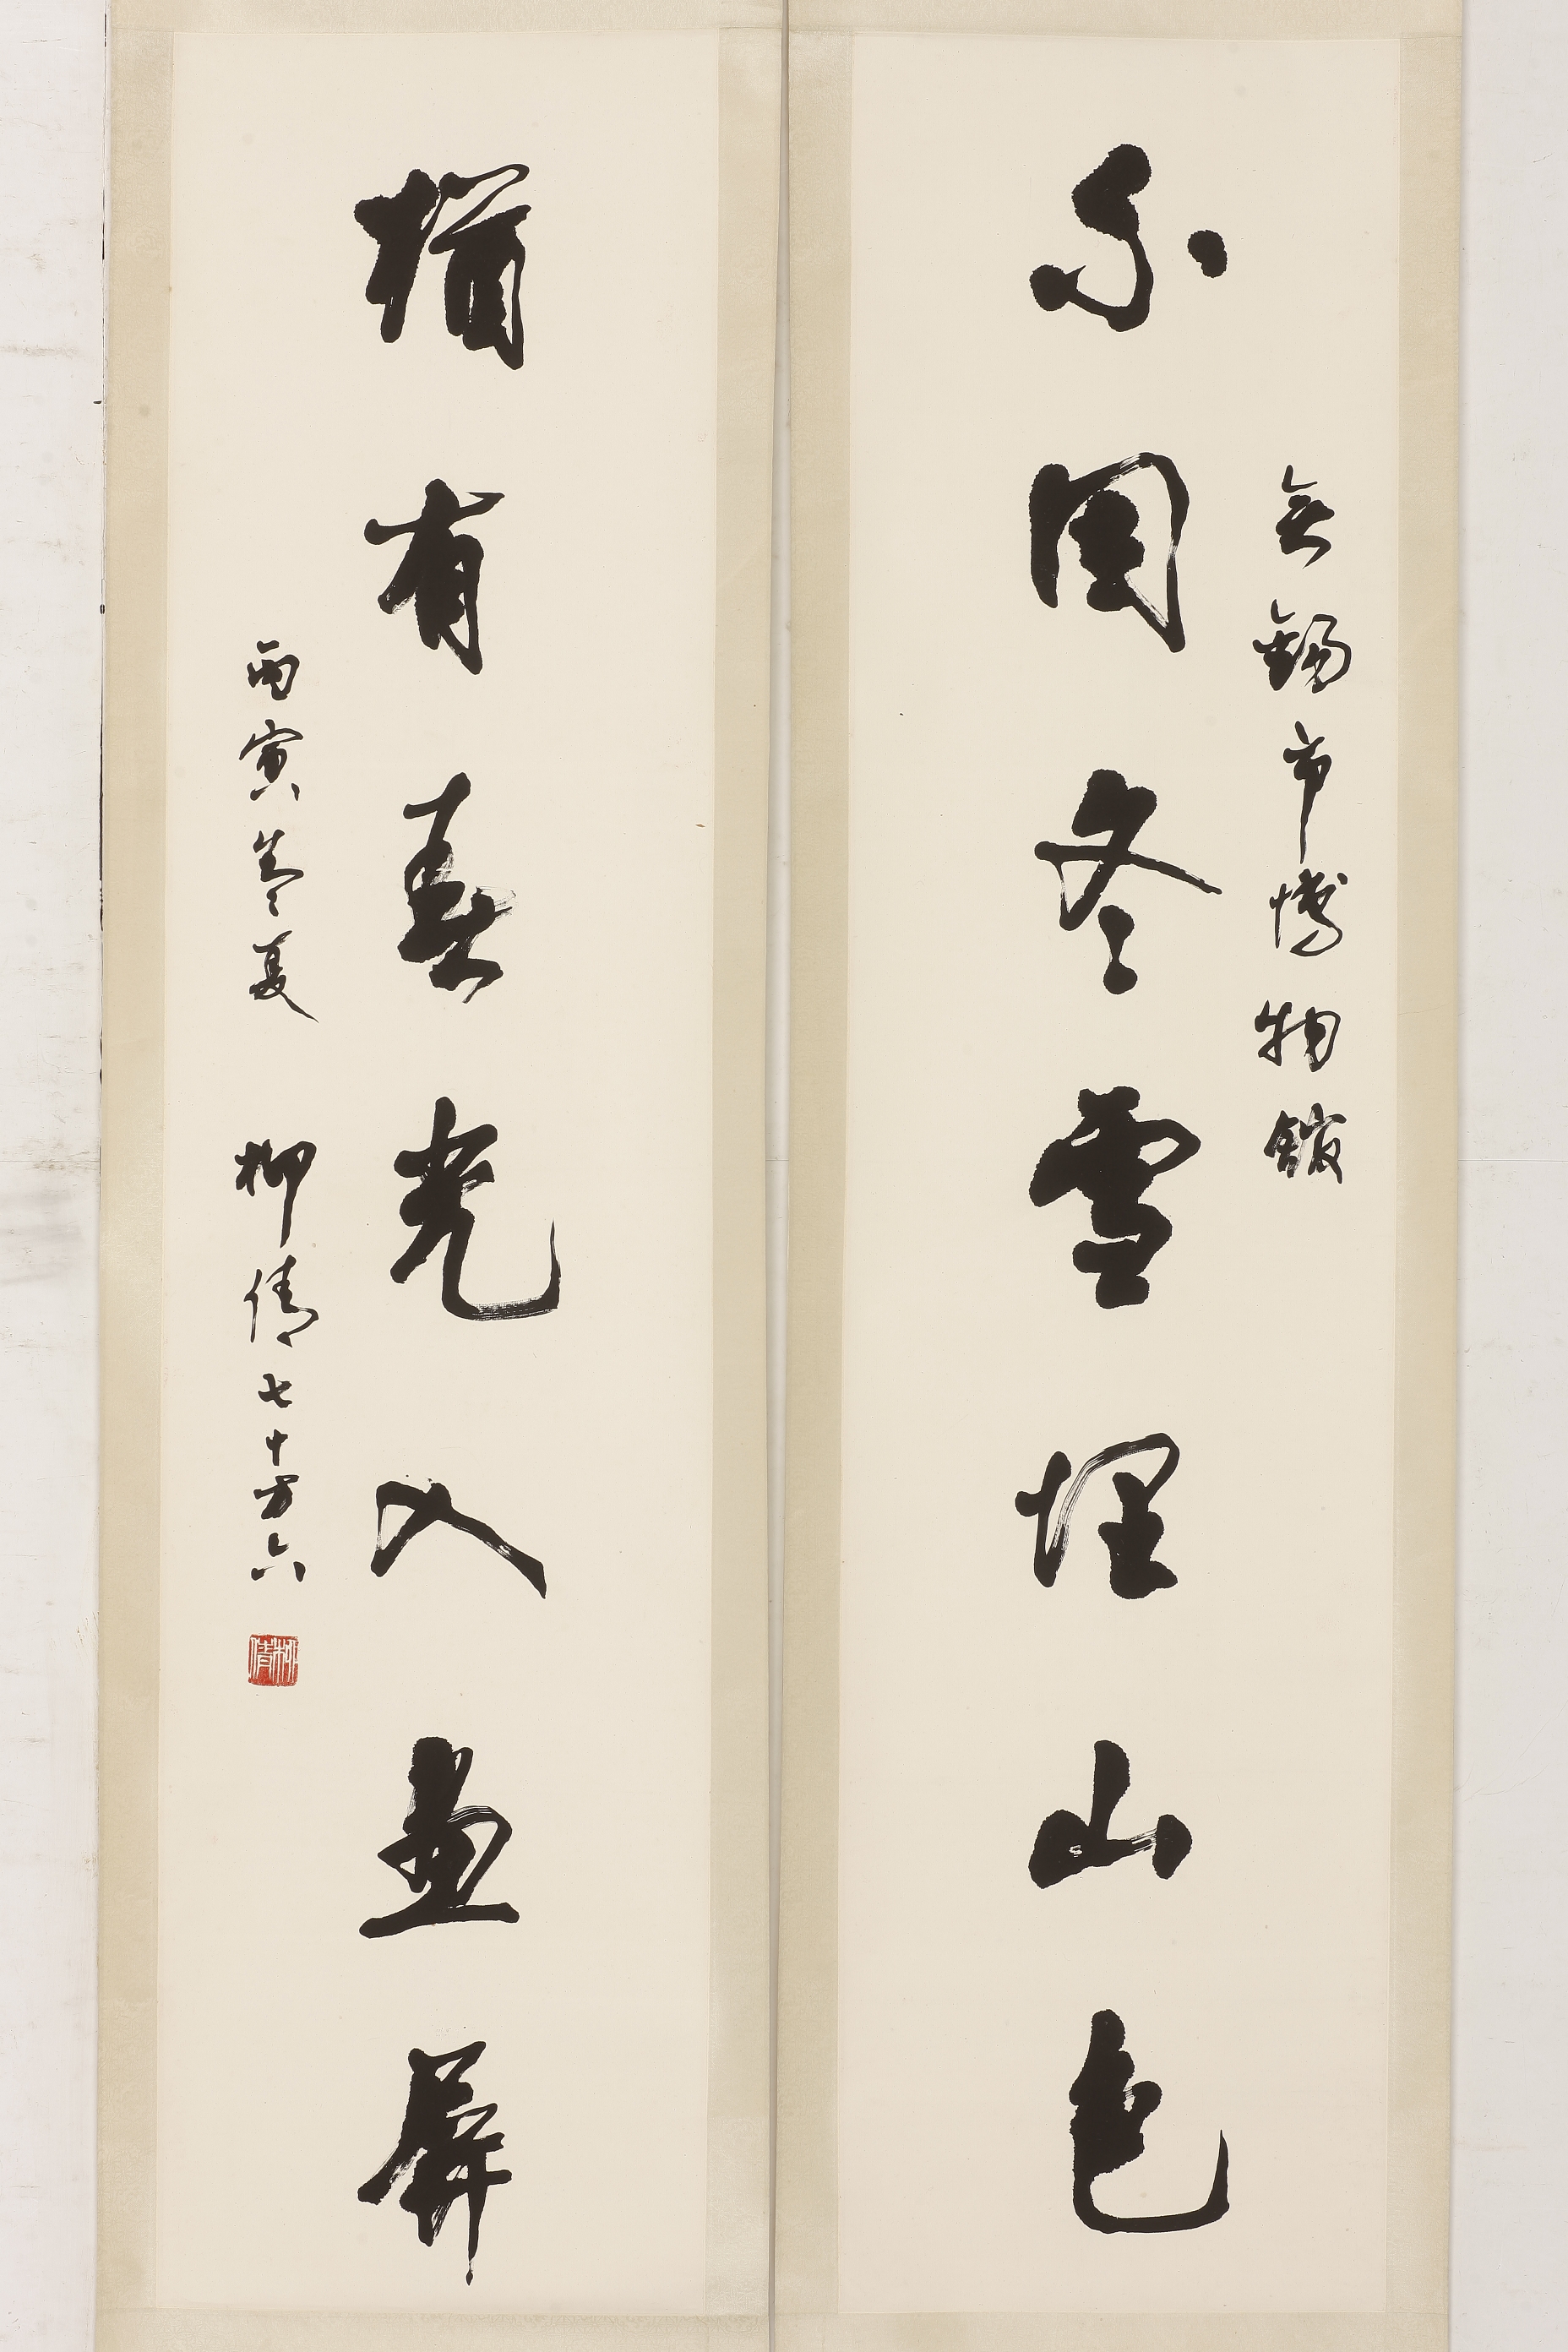 无锡市博物館
不因冬雪埋山色
猶有春光入畫屏
丙寅夏 柳倩七十方六
柳倩